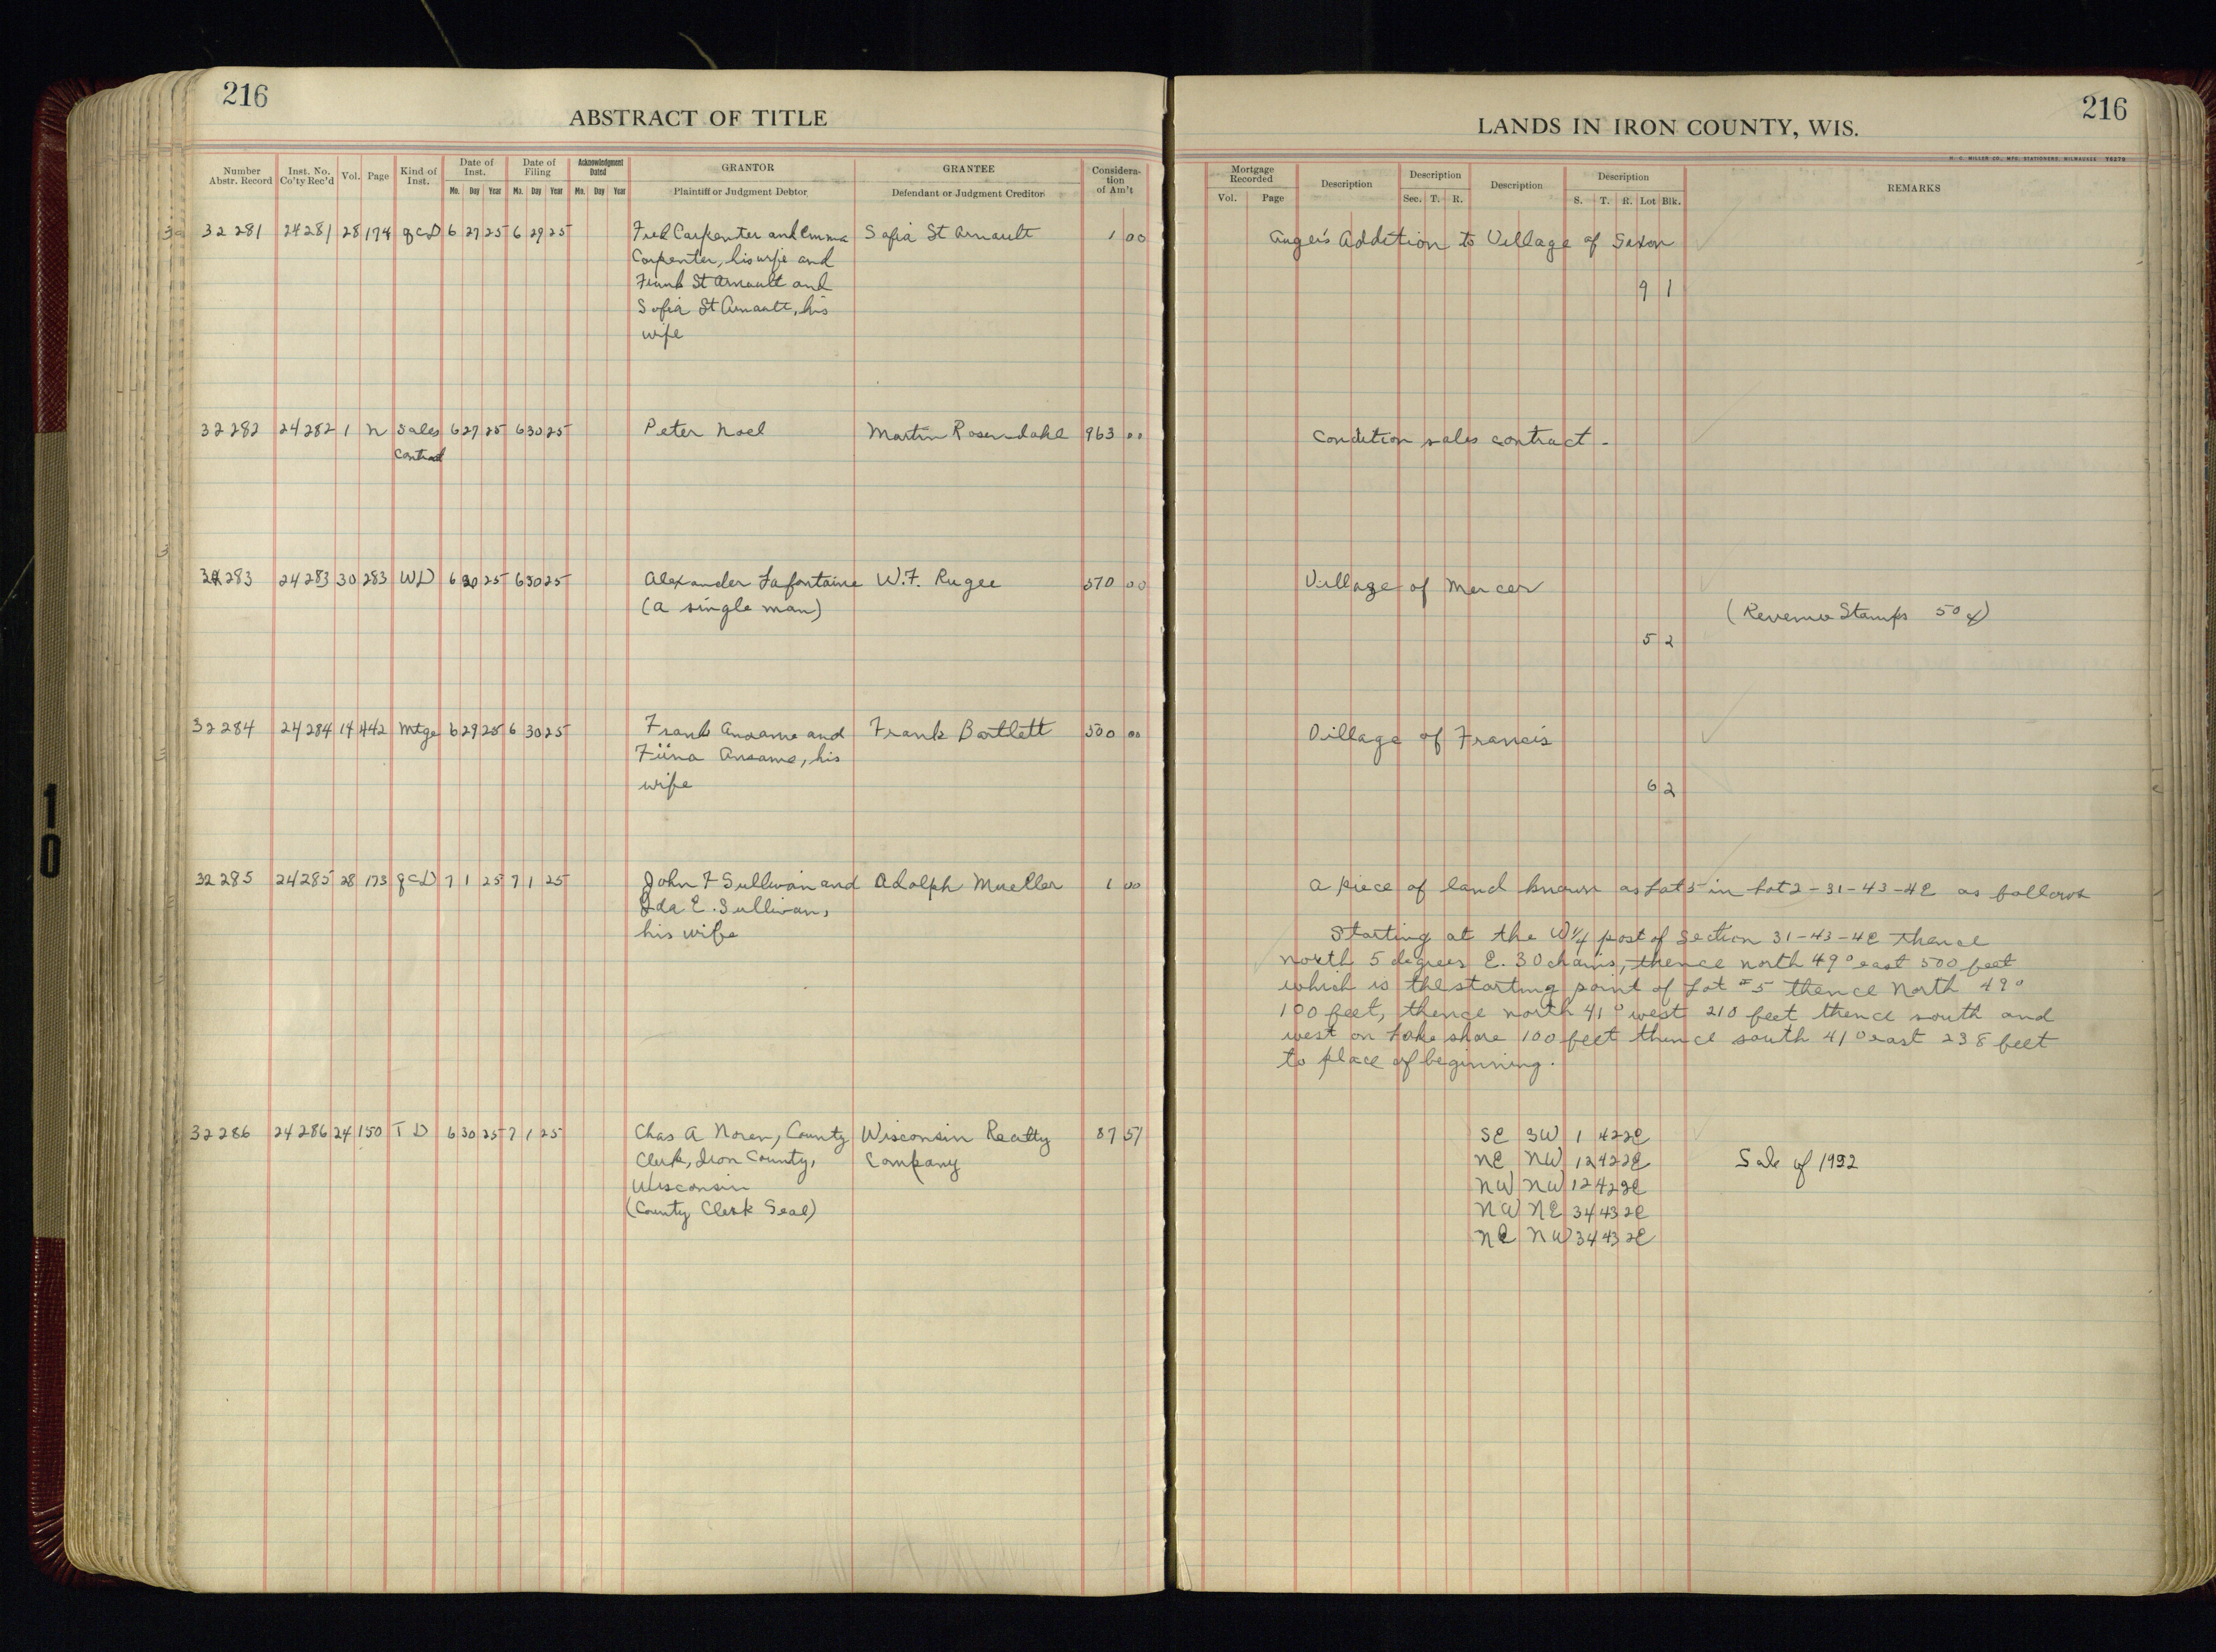 216
ABSTRACT OF TITLE
Number Abstr. Record Inst. No. Co'ty Rec'd Vol. Page Kind of Inst. Date of Inst. Date of Filing Acknowledgment Dated GRANTOR GRANTEE Consideration of Am't
Mo. Day Year Mo. Day Year Mo. Day Year Plaintiff or Judgment Debtor Defendant or Judgment Creditor
32281 24281 28 174 QCD 6 27 25 6 29 25 Fred Carpenter and Emma Sofia St Arnault 1 00
Carpenter, his wife and
Frank St Arnault and
Sofia St Arnault, his
wife
32282 24282 1 N Sales 6 27 25 6 30 25 Peter Noel Martin Rosendahl 963 00
Contract
32283 24283 30 283 WD 6 30 25 6 30 25 Alexander Lafontaine W.F. Rugee 370 00
(a single man)
32284 24284 14 442 Mtge 6 29 25 6 30 25 Frank Ansamo and Frank Bartlett 500 00
Fiina Ansamo, his
wife
32285 24285 28 173 QCD 7 1 25 7 1 25 John F Sullivan and Adolph Mueller 1 00
Ida E. Sullivan,
his wife
32286 24286 24 150 T D 6 30 25 7 1 25 Chas A Noren, County Wisconsin Realty 87 51
Clerk, Iron County, Company
Wisconsin
(County Clerk Seal)
10
216
LANDS IN IRON COUNTY, WIS.
H. C. MILLER CO., MFG. STATIONERS, MILWAUKEE
Mortgage Recorded Description Description Description Description REMARKS
Vol. Page Sec. T. R. S. T. R. Lot Blk.
Auger's Addition to Village of Saxon
9 1
Condition sales contract -
Village of Mercer
(Revenue Stamps 50¢)
5 2
Village of Francis
6 2
A piece of land known as Lot 5 in Lot 2-31-43-4E as follows
Starting at the W¼ post of Section 31-43-4E thence
north 5 degrees E. 30 chains, thence north 49° east 500 feet
which is the starting point of Lot #5 thence North 49°
100 feet, thence north 41° west 210 feet thence south and
west on Lake shore 100 feet thence south 41° east 238 feet
to place of beginning.
SE SW 1 42 2E
NE NW 12 42 2E Sale of 1922
NW NW 12 42 2E
NW NE 34 43 2E
NE NW 34 43 2E